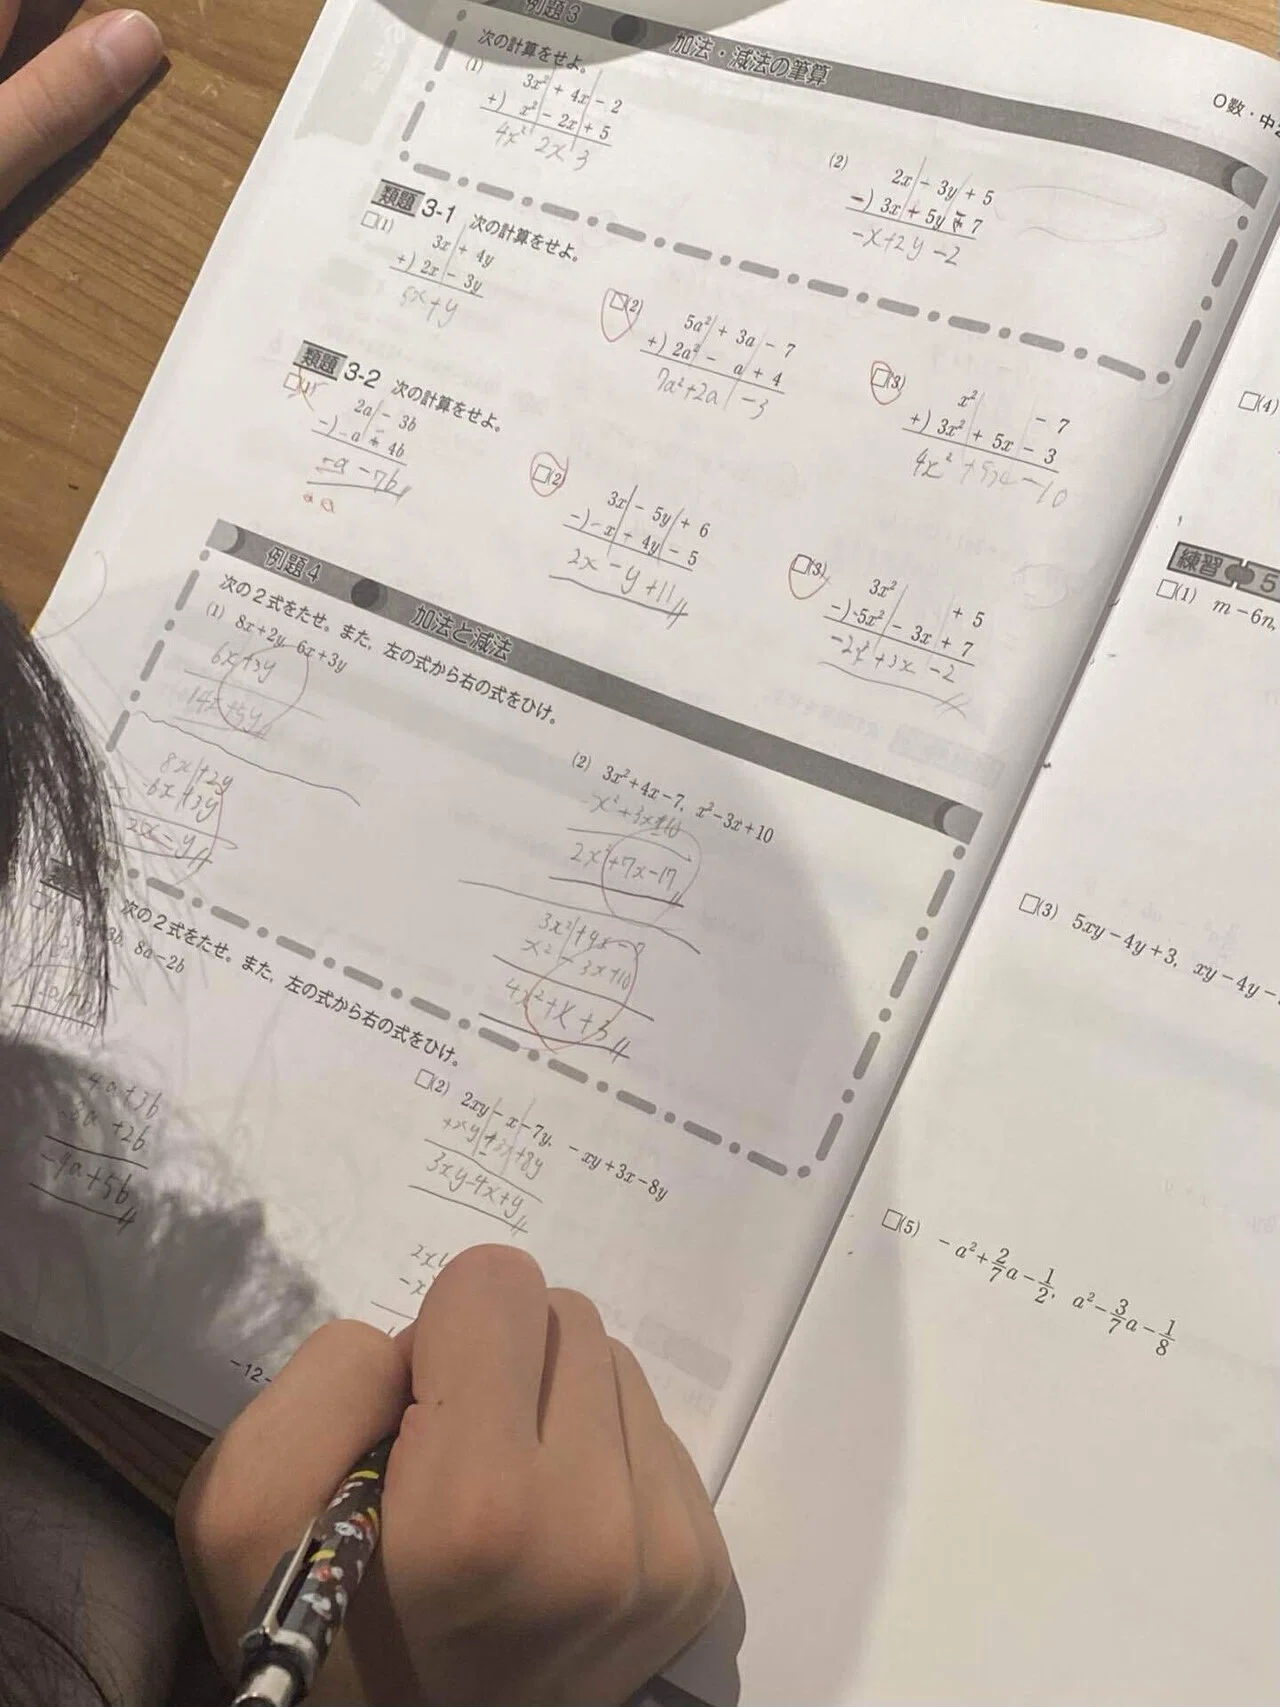 例題3
加法・減法の筆算
O数・中2
次の計算をせよ。
(1)
3x² + 4x - 2
+) x² - 2x + 5
4x² 2x 3
(2)
2x - 3y + 5
-) 3x + 5y - 7
-x+2y-2
類題 3-1 次の計算をせよ。
□(1)
3x + 4y
+) 2x - 3y
5x+y
□(2)
5a² + 3a - 7
+) 2a² - a + 4
7a²+2a-3
□(3)
x² - 7
+) 3x² + 5x - 3
4x²+5x-10
類題 3-2 次の計算をせよ。
□(1)
2a - 3b
-) -a + 4b
a - 7b
□(2)
3x - 5y + 6
-) -x + 4y - 5
2x - y + 11
□(3)
3x² + 5
-) -5x² - 3x + 7
-2x²+3x-2
例題4
加法と減法
次の2式をたせ。また、左の式から右の式をひけ。
(1) 8x+2y, 6x+3y
6x+3y
14x+5y
8x+2y
-6x+3y
2x-y
(2) 3x²+4x-7, x²-3x+10
-x²+3x+10
2x²+7x-17
3x²+4x-7
x²-3x+10
4x²+x+3
次の2式をたせ。また、左の式から右の式をひけ。
3b, 8a-2b
4a+3b
-8a+2b
-4a+5b
□(2) 2xy-x-7y, -xy+3x-8y
+xy+3x+8y
3xy-4x+y
-12-
□(4)
練習 5
□(1) m-6n,
□(3) 5xy-4y+3, xy-4y-
□(5) -a²+2/7a-1/2, a²-3/7a-1/8